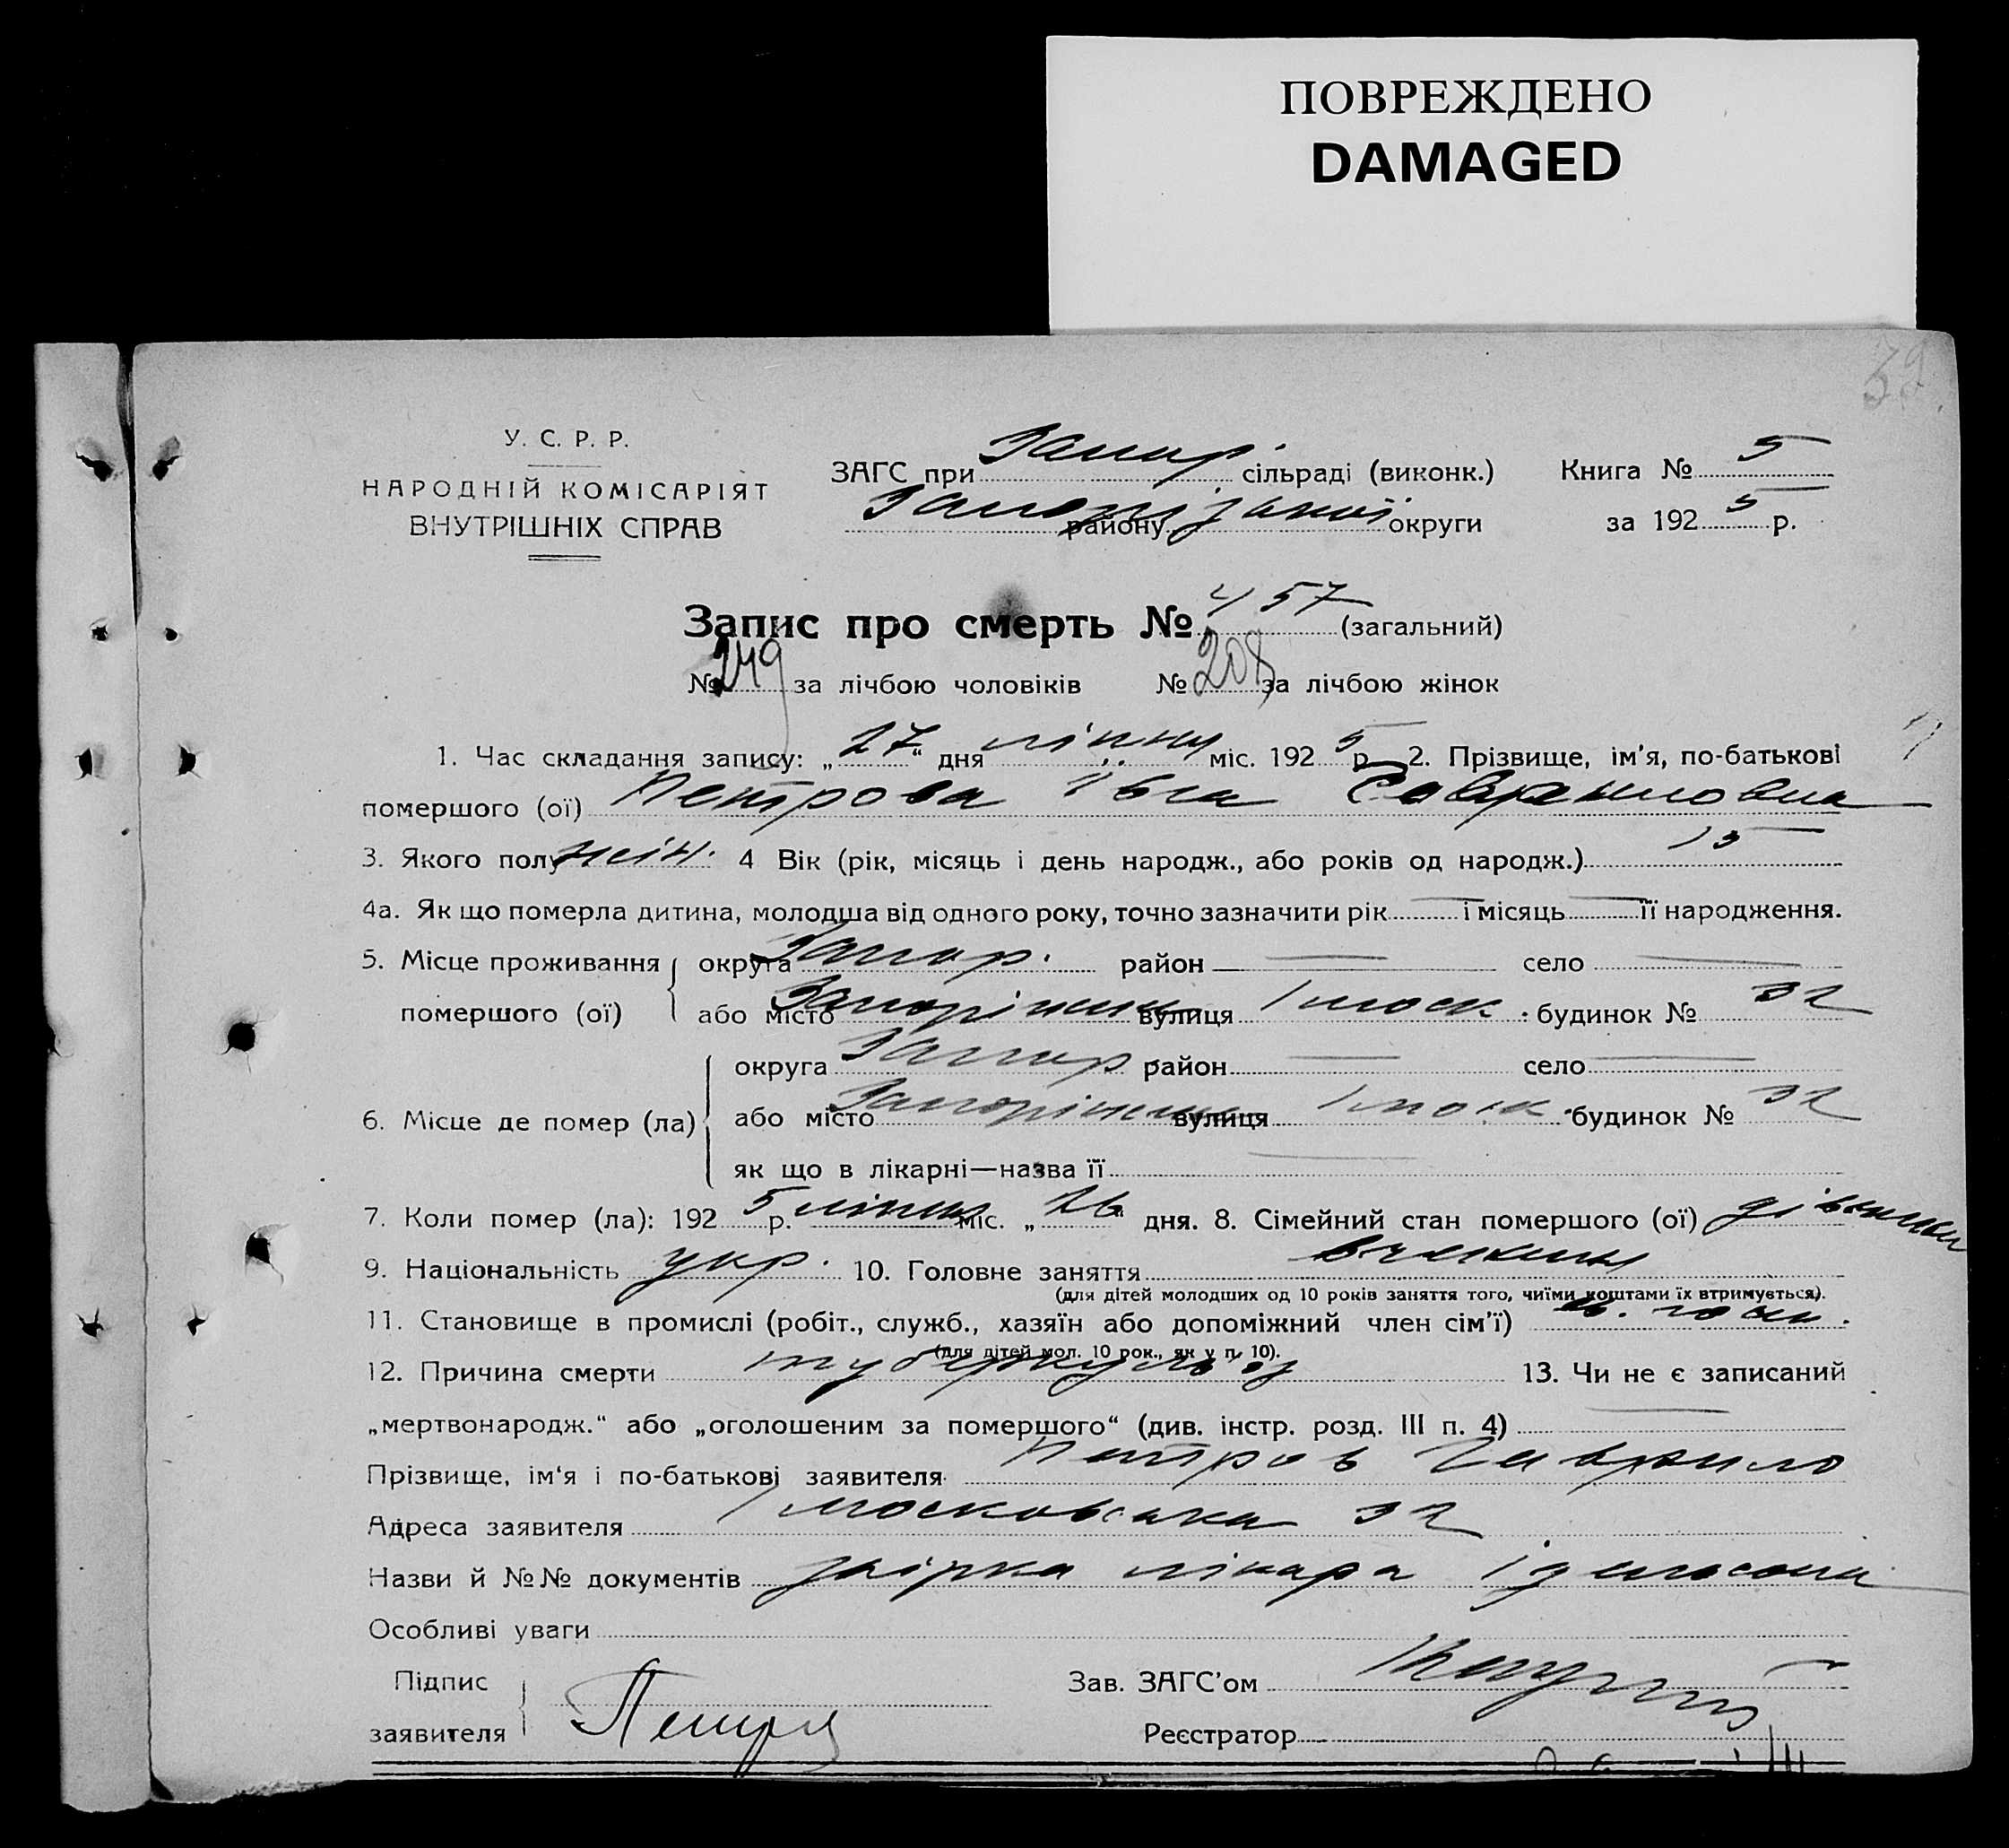 ПОВРЕЖДЕНО
DAMAGED
39
У. С. Р. Р.
НАРОДНІЙ КОМІСАРІЯТ
ВНУТРІШНІХ СПРАВ
ЗАГС при Запор. сільраді (виконк.) Книга № 5
району Запорізької округи за 1925 р.
Запис про смерть № 457 (загальний)
№ 249 за лічбою чоловіків № 208 за лічбою жінок
1. Час складання запису: „27“ дня липня міс. 1925 р. 2. Прізвище, ім'я, по-батькові
помершого (ої) Петрова Ївга Гавриловна
3. Якого полу жін. 4 Вік (рік, місяць і день народж., або років од народж.) 15
4а. Як що померла дитина, молодша від одного року, точно зазначити рік — і місяць — її народження.
5. Місце проживання помершого (ої) округа Запор. район — село —
або місто Запоріжжя вулиця 1 моск. будинок № 32
6. Місце де помер (ла) округа Запор район — село —
або місто Запоріжжя вулиця 1 моск. будинок № 32
як що в лікарні—назва її —
7. Коли помер (ла): 1925 р. липня міс. „26“ дня. 8. Сімейний стан помершого (ої)
9. Національність укр. 10. Головне заняття
(для дітей молодших од 10 років заняття того, чиїми коштами їх втримується).
11. Становище в промислі (робіт., служб., хазяїн або допоміжний член сім'ї)
(для дітей мол. 10 рок., як у п. 10).
12. Причина смерти туберкульоз 13. Чи не є записаний
„мертвонародж.“ або „оголошеним за помершого“ (див. інстр. розд. III п. 4) —
Прізвище, ім'я і по-батькові заявителя Петров Гаврило
Адреса заявителя 1 московська 32
Назви й №№ документів довідка лікара
Особливі уваги
Підпис заявителя
Зав. ЗАГС'ом
Реєстратор